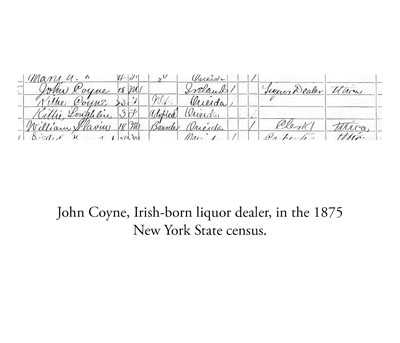 Mary A. " 4 f Oneida 1
John Coyne M Ireland 1 Liquor Dealer Utica
Kittie Coyne f Oneida
Kittie Loughlin 3 f Adopted Oneida
William Slavin 18 M Boarder Oneida 1 Clerk Utica
John Coyne, Irish-born liquor dealer, in the 1875
New York State census.